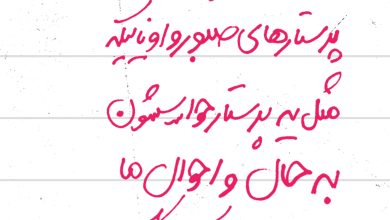 پرستارهای صبور و اونایی که
مثل یه پرستار حواسشون
به حال و احوال ما